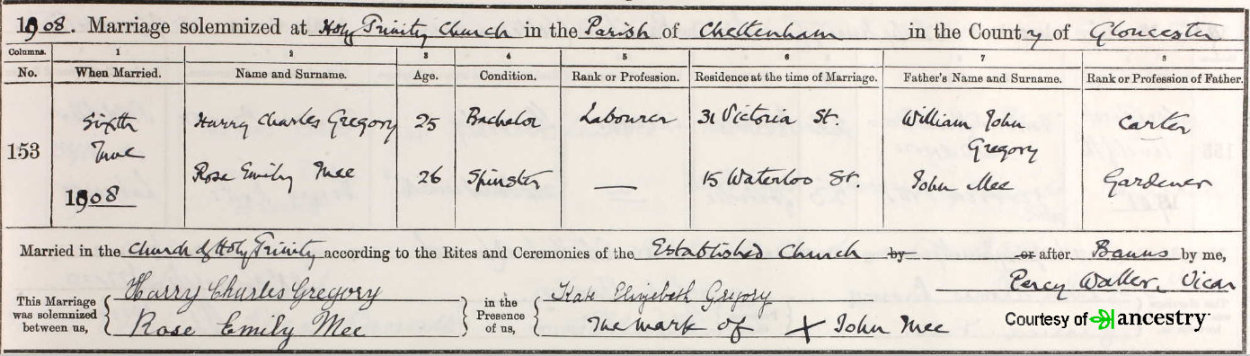 1908. Marriage solemnized at Holy Trinity Church in the Parish of Cheltenham in the County of Gloucester
Columns. 1 2 3 4 5 6 7 8
No. When Married. Name and Surname. Age. Condition. Rank or Profession. Residence at the time of Marriage. Father's Name and Surname. Rank or Profession of Father.
153
Sixth
June
1908
Harry Charles Gregory 25 Bachelor Labourer 31 Victoria St. William John Gregory Carter
Rose Emily Mee 26 Spinster — 15 Waterloo St. John Mee Gardener
Married in the Church of Holy Trinity according to the Rites and Ceremonies of the Established Church by or after Banns by me,
Percy Waller, Vicar
This Marriage was solemnized between us,
Harry Charles Gregory
Rose Emily Mee
in the Presence of us,
Kate Elizabeth Gregory
The mark of X John Mee
Courtesy of ancestry